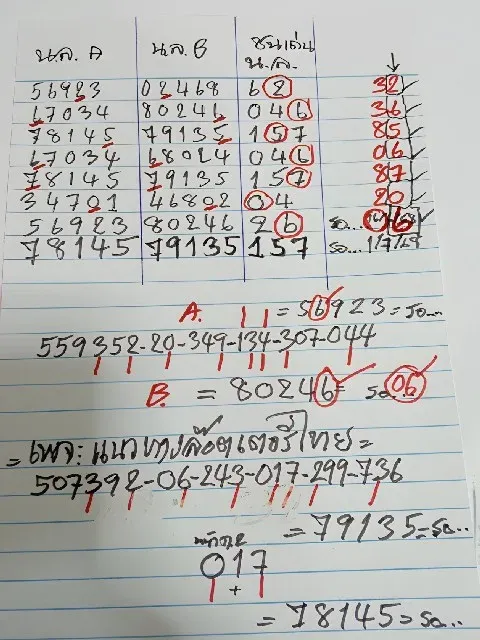 น.ล. A น.ล. B ชนเด่น
น.ล.
56923 02468 62 32
67034 80246 046 36
78145 79135 157 85
67034 68024 046 06
78145 79135 157 87
34701 46802 04 20
56923 80246 26 รอ... 06
78145 79135 157 รอ... 1/7/69
A. = 56923 = รอ...
559352-20-349-134-307-044
B. = 80246 = รอ.. 06
= เพจ: แนวทางล๊อตเตอรี่ไทย =
507392-06-243-017-299-736
= 79135 = รอ...
017
+
= 78145 = รอ...